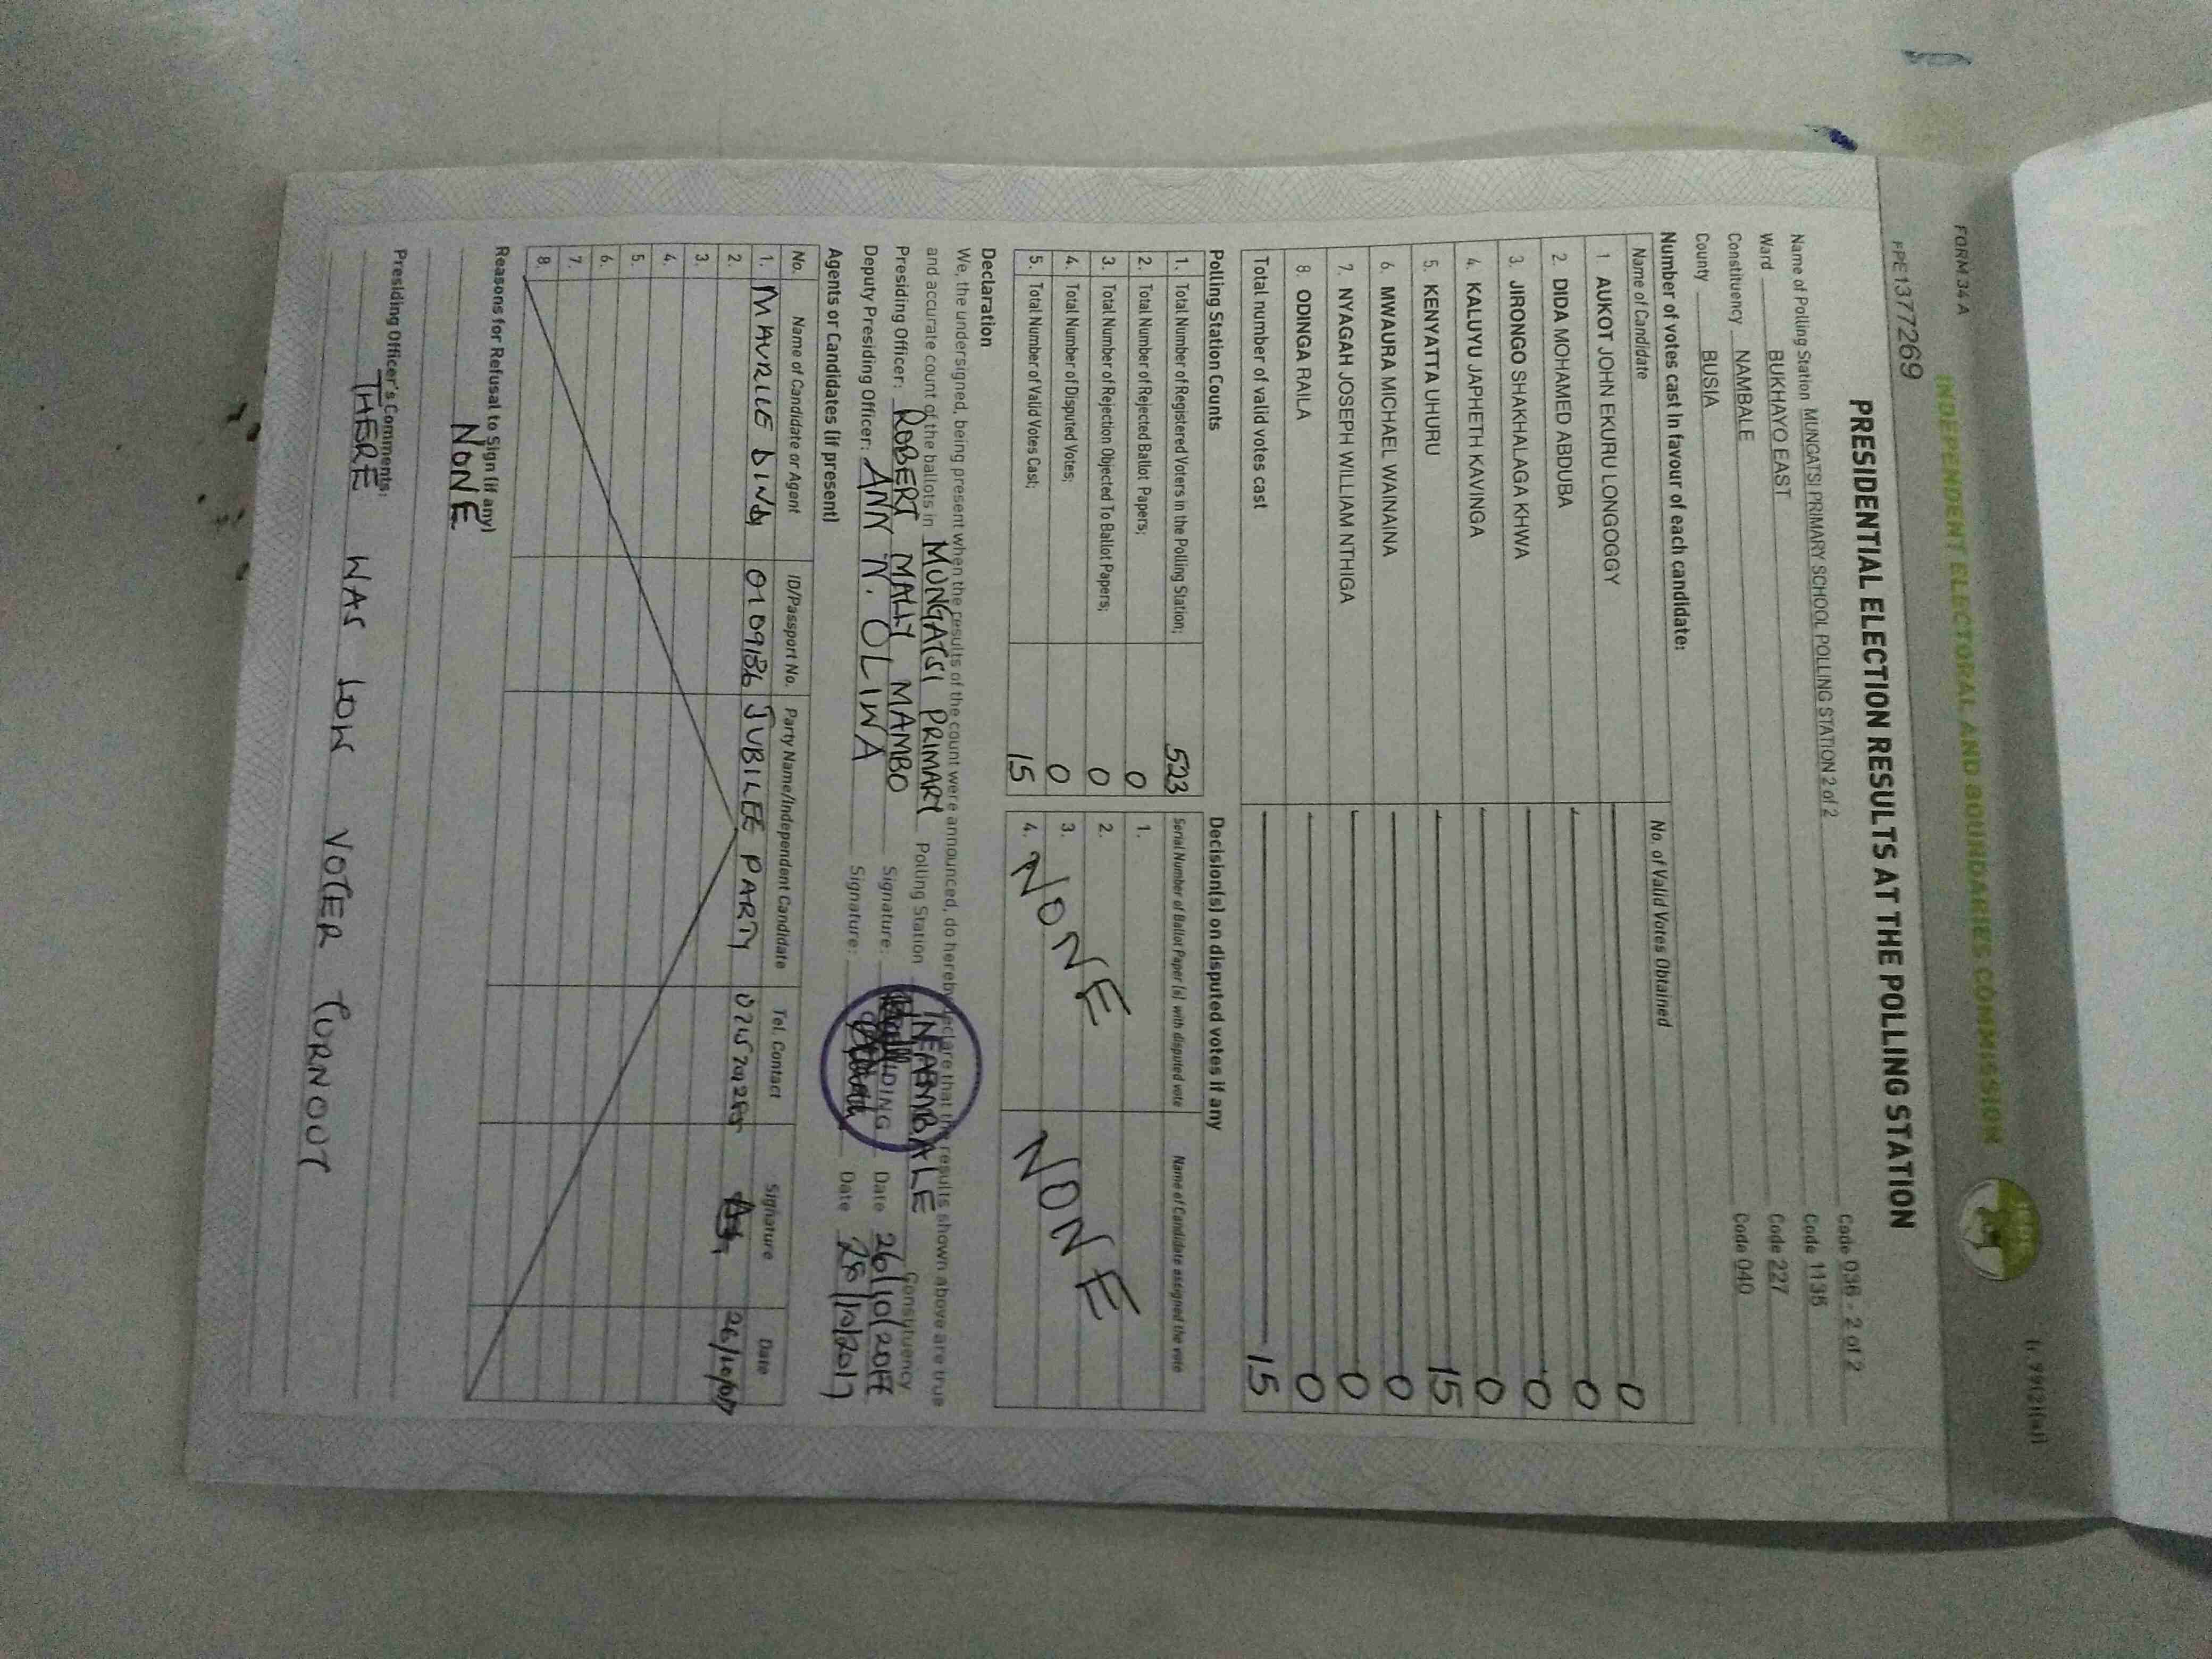 FORM 34A
r. 99(2)(a)
INDEPENDENT ELECTORAL AND BOUNDARIES COMMISSION
IEBC
FPE1377269
PRESIDENTIAL ELECTION RESULTS AT THE POLLING STATION
Name of Polling Station MUNGATSI PRIMARY SCHOOL POLLING STATION 2 of 2 Code 036 - 2 of 2
Ward BUKHAYO EAST Code 1135
Constituency NAMBALE Code 227
County BUSIA Code 040
Number of votes cast in favour of each candidate:
Name of Candidate No. of Valid Votes Obtained
1 AUKOT JOHN EKURU LONGOGGY 0
2. DIDA MOHAMED ABDUBA 0
3. JIRONGO SHAKHALAGA KHWA 0
4. KALUYU JAPHETH KAVINGA 0
5. KENYATTA UHURU 15
6. MWAURA MICHAEL WAINAINA 0
7. NYAGAH JOSEPH WILLIAM NTHIGA 0
8. ODINGA RAILA 0
Total number of valid votes cast 15
Polling Station Counts Decision(s) on disputed votes if any
1. Total Number of Registered Voters in the Polling Station; 523 Serial Number of Ballot Paper (s) with disputed vote Name of Candidate assigned the vote
2. Total Number of Rejected Ballot Papers; 0 1.
3. Total Number of Rejection Objected To Ballot Papers; 0 2.
4. Total Number of Disputed Votes; 0 3.
5. Total Number of Valid Votes Cast; 15 4.
NONE NONE
Declaration
We, the undersigned, being present when the results of the count were announced, do hereby declare that the results shown above are true
and accurate count of the ballots in MUNGATSI PRIMARY Polling Station NAMBALE Constituency
Presiding Officer: ROBERT MALLY MAMBO Signature: Date 26/10/2017
Deputy Presiding Officer: ANN N. OLIWA Signature: Date 26/10/2017
Agents or Candidates (if present)
No. Name of Candidate or Agent ID/Passport No. Party Name/Independent Candidate Tel. Contact Signature Date
1. MAURICE 0109186 JUBILEE PARTY 26/10/017
2.
3.
4.
5.
6.
7.
8.
Reasons for Refusal to Sign (if any)
NONE
Presiding Officer's Comments:
THERE WAS LOW VOTER TURNOUT